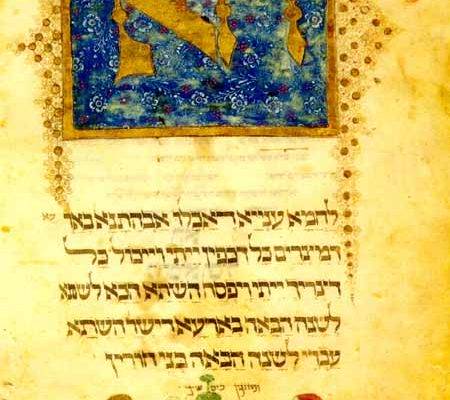 הא
לחמא ענייא דאכלו אבהתנא בארעא
דמצרים כל דכפין ייתי וייכול כל
דצריך ייתי ויפסח השתא הכא לשתא
לשנה הבאה בארעא דישר השתא
עבדי לשנה הבאה בני חורין
ומוזגין כוס שני